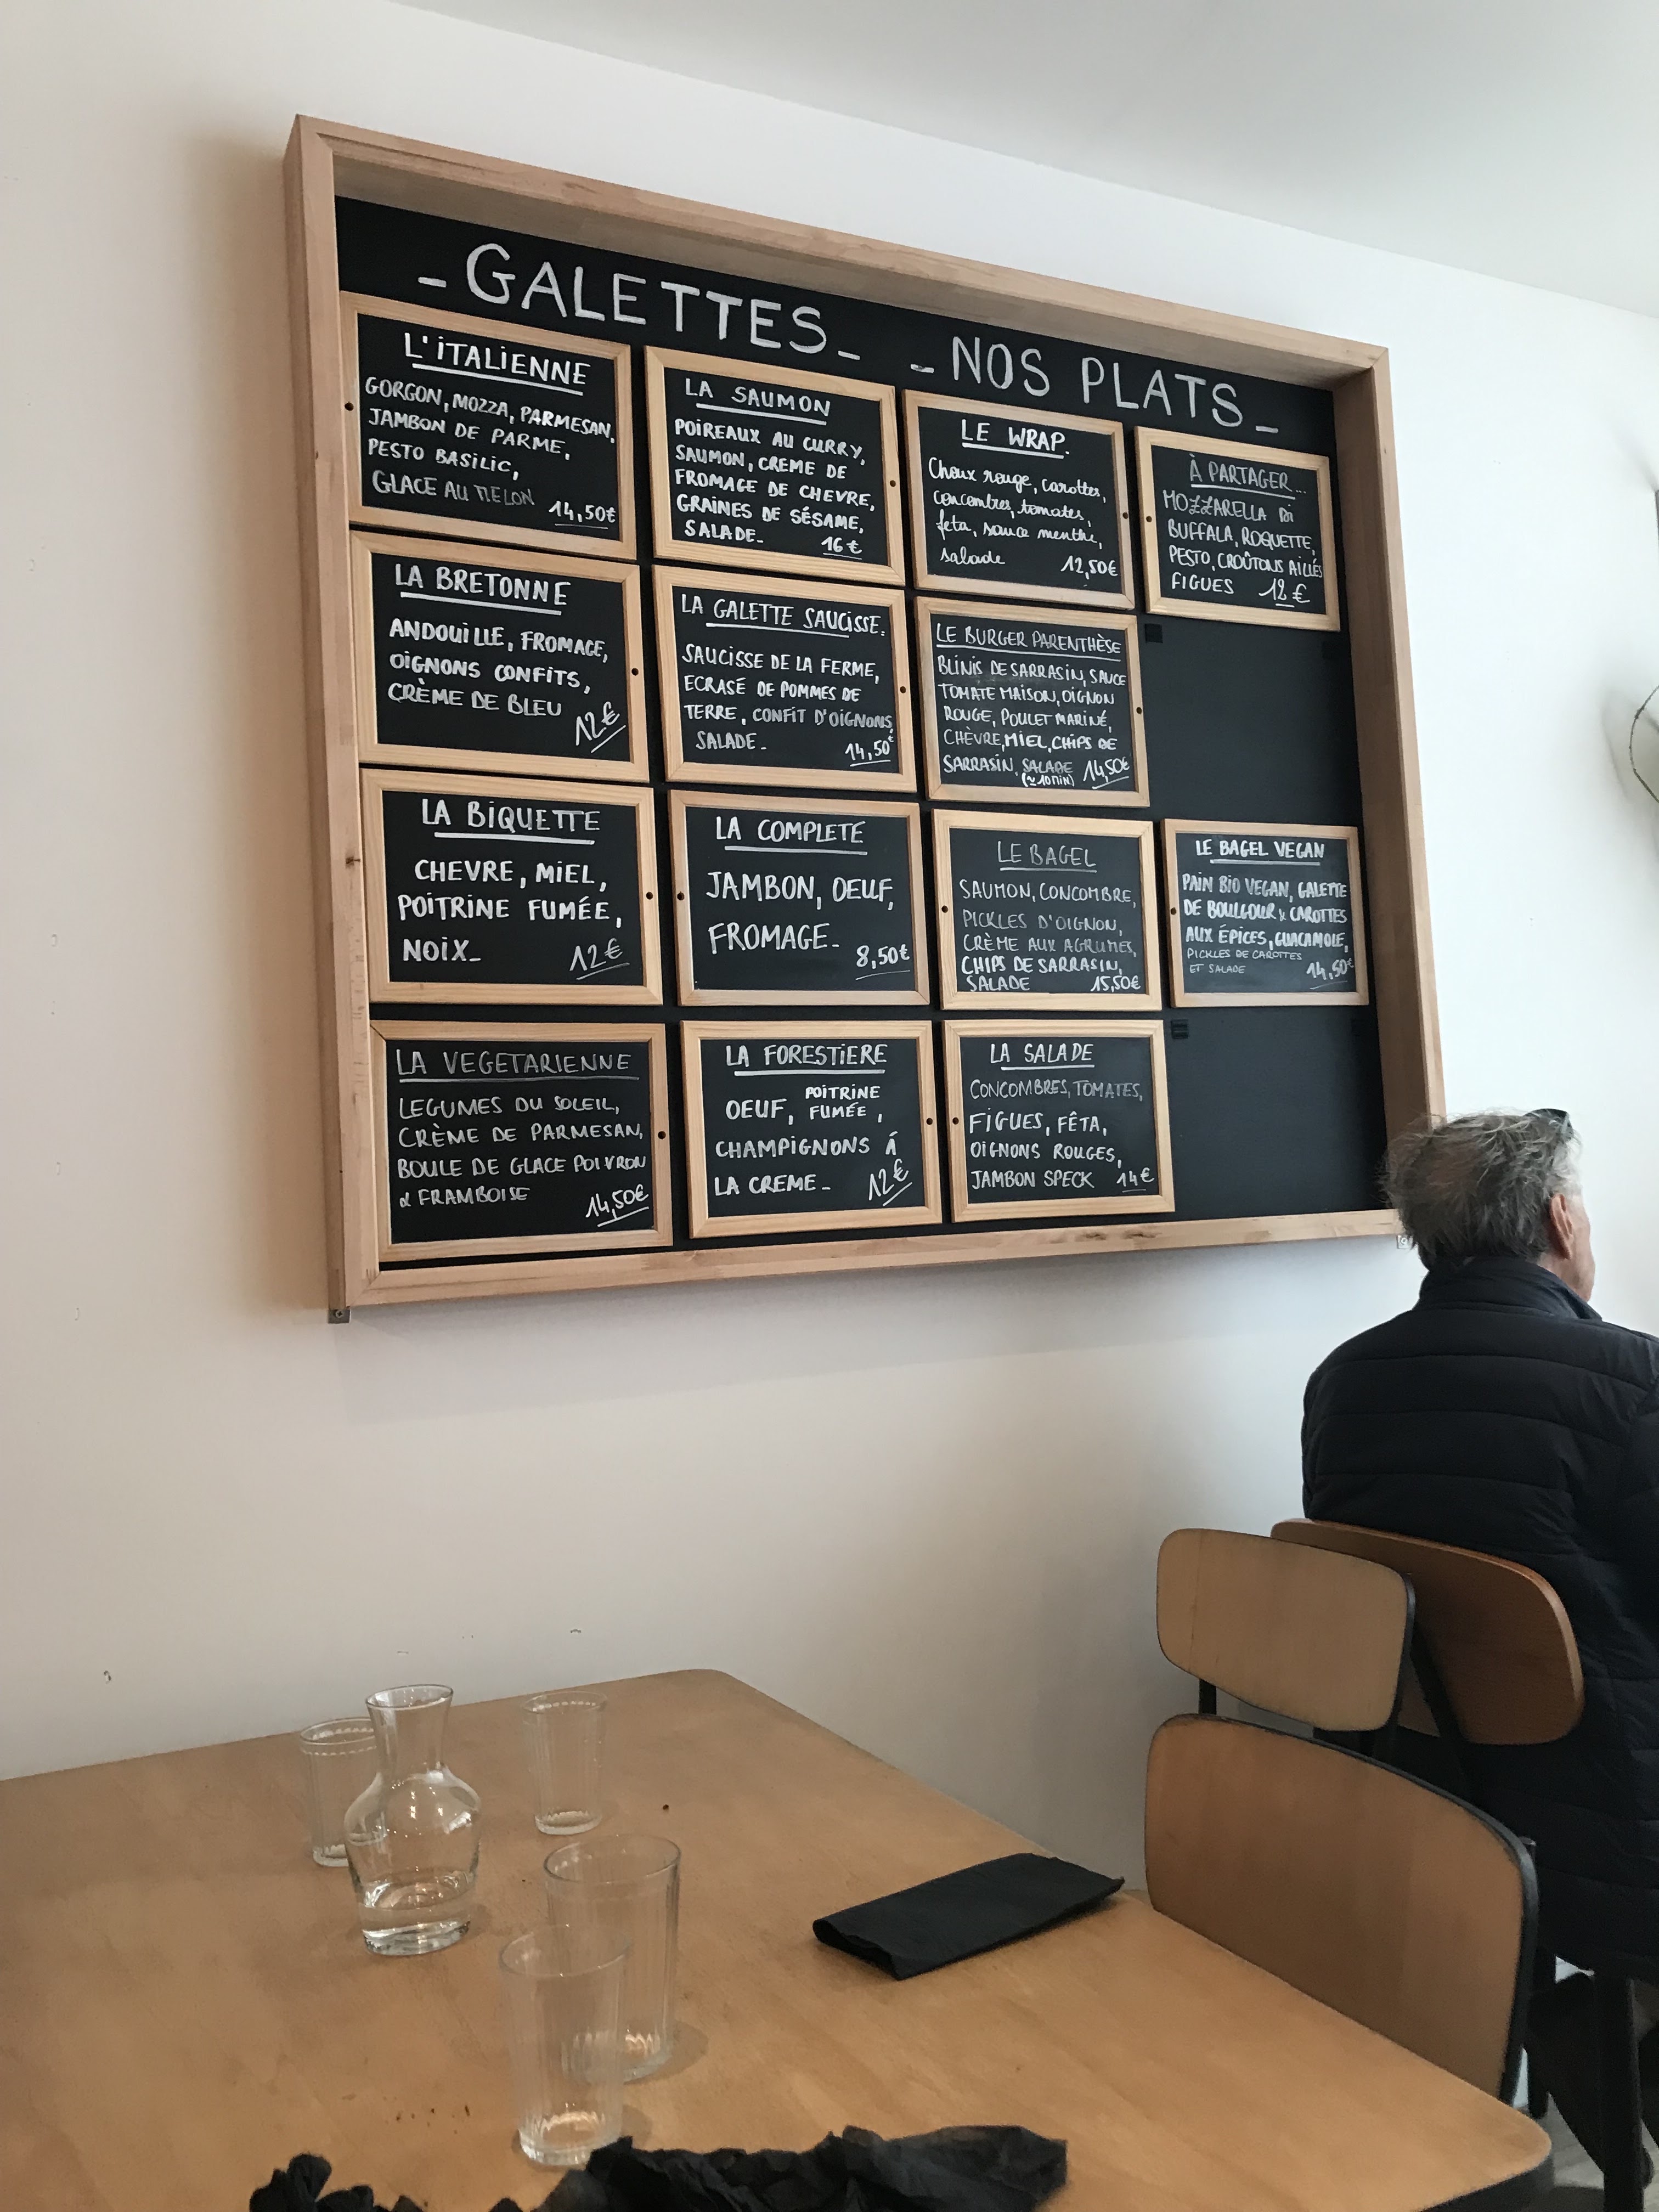 - GALETTES -
L'ITALIENNE
GORGON, MOZZA, PARMESAN,
JAMBON DE PARME,
PESTO BASILIC,
GLACE AU MELON 14,50€
LA SAUMON
POIREAUX AU CURRY,
SAUMON, CREME DE
FROMAGE DE CHEVRE,
GRAINES DE SÉSAME,
SALADE- 16€
LA BRETONNE
ANDOUILLE, FROMAGE,
OIGNONS CONFITS,
CRÈME DE BLEU
12€
LA GALETTE SAUCISSE.
SAUCISSE DE LA FERME,
ECRASÉ DE POMMES DE
TERRE, CONFIT D'OIGNONS,
SALADE- 14,50€
LA BIQUETTE
CHEVRE, MIEL,
POITRINE FUMÉE,
NOIX- 12€
LA COMPLETE
JAMBON, OEUF,
FROMAGE- 8,50€
LA VEGETARIENNE
LEGUMES DU SOLEIL,
CRÈME DE PARMESAN,
BOULE DE GLACE POIVRON
& FRAMBOISE 14,50€
LA FORESTIERE
OEUF, POITRINE FUMÉE,
CHAMPIGNONS Á
LA CREME- 12€
- NOS PLATS -
LE WRAP.
Choux rouge, carottes,
concombres, tomates,
feta, sauce menthe,
salade 12,50€
À PARTAGER...
MOZZARELLA DI
BUFFALA, ROQUETTE,
PESTO, CROÛTONS AILLÉS
FIGUES 12€
LE BURGER PARENTHÈSE
BLINIS DE SARRASIN, SAUCE
TOMATE MAISON, OIGNON
ROUGE, POULET MARINÉ,
CHÈVRE, MIEL, CHIPS DE
SARRASIN, SALADE 14,50€
(≃10MIN)
LE BAGEL
SAUMON, CONCOMBRE,
PICKLES D'OIGNON,
CRÈME AUX AGRUMES,
CHIPS DE SARRASIN,
SALADE 15,50€
LE BAGEL VEGAN
PAIN BIO VEGAN, GALETTE
DE BOULGOUR & CAROTTES
AUX ÉPICES, GUACAMOLE,
PICKLES DE CAROTTES
ET SALADE 14,50€
LA SALADE
CONCOMBRES, TOMATES,
FIGUES, FÊTA,
OIGNONS ROUGES,
JAMBON SPECK 14€